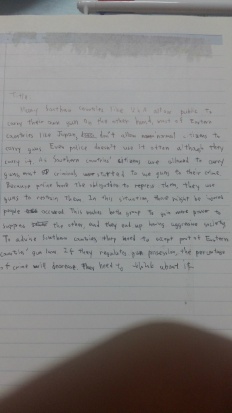 Title:
Many Southern countries like USA allow public to
carry their own guns. On the other hand, most of Eastern
countries like Japan, don't allow normal citizens to
carry guns. Even police doesn't use it often although they
carry it. As Southern countries' citizens are allowed to carry
guns, most of criminals started to use guns to their crime.
Because police have the obligation to repress them, they use
guns to restrain them. In this situation, there might be wrong
people accused. This makes both group to use more power to
suppress the other, and they end up being aggressive society.
To advise Southern countries, they need to accept part of Eastern
countries' gun law. If they regulate gun possession, the percentage
of crime will decrease. They need to think about it.